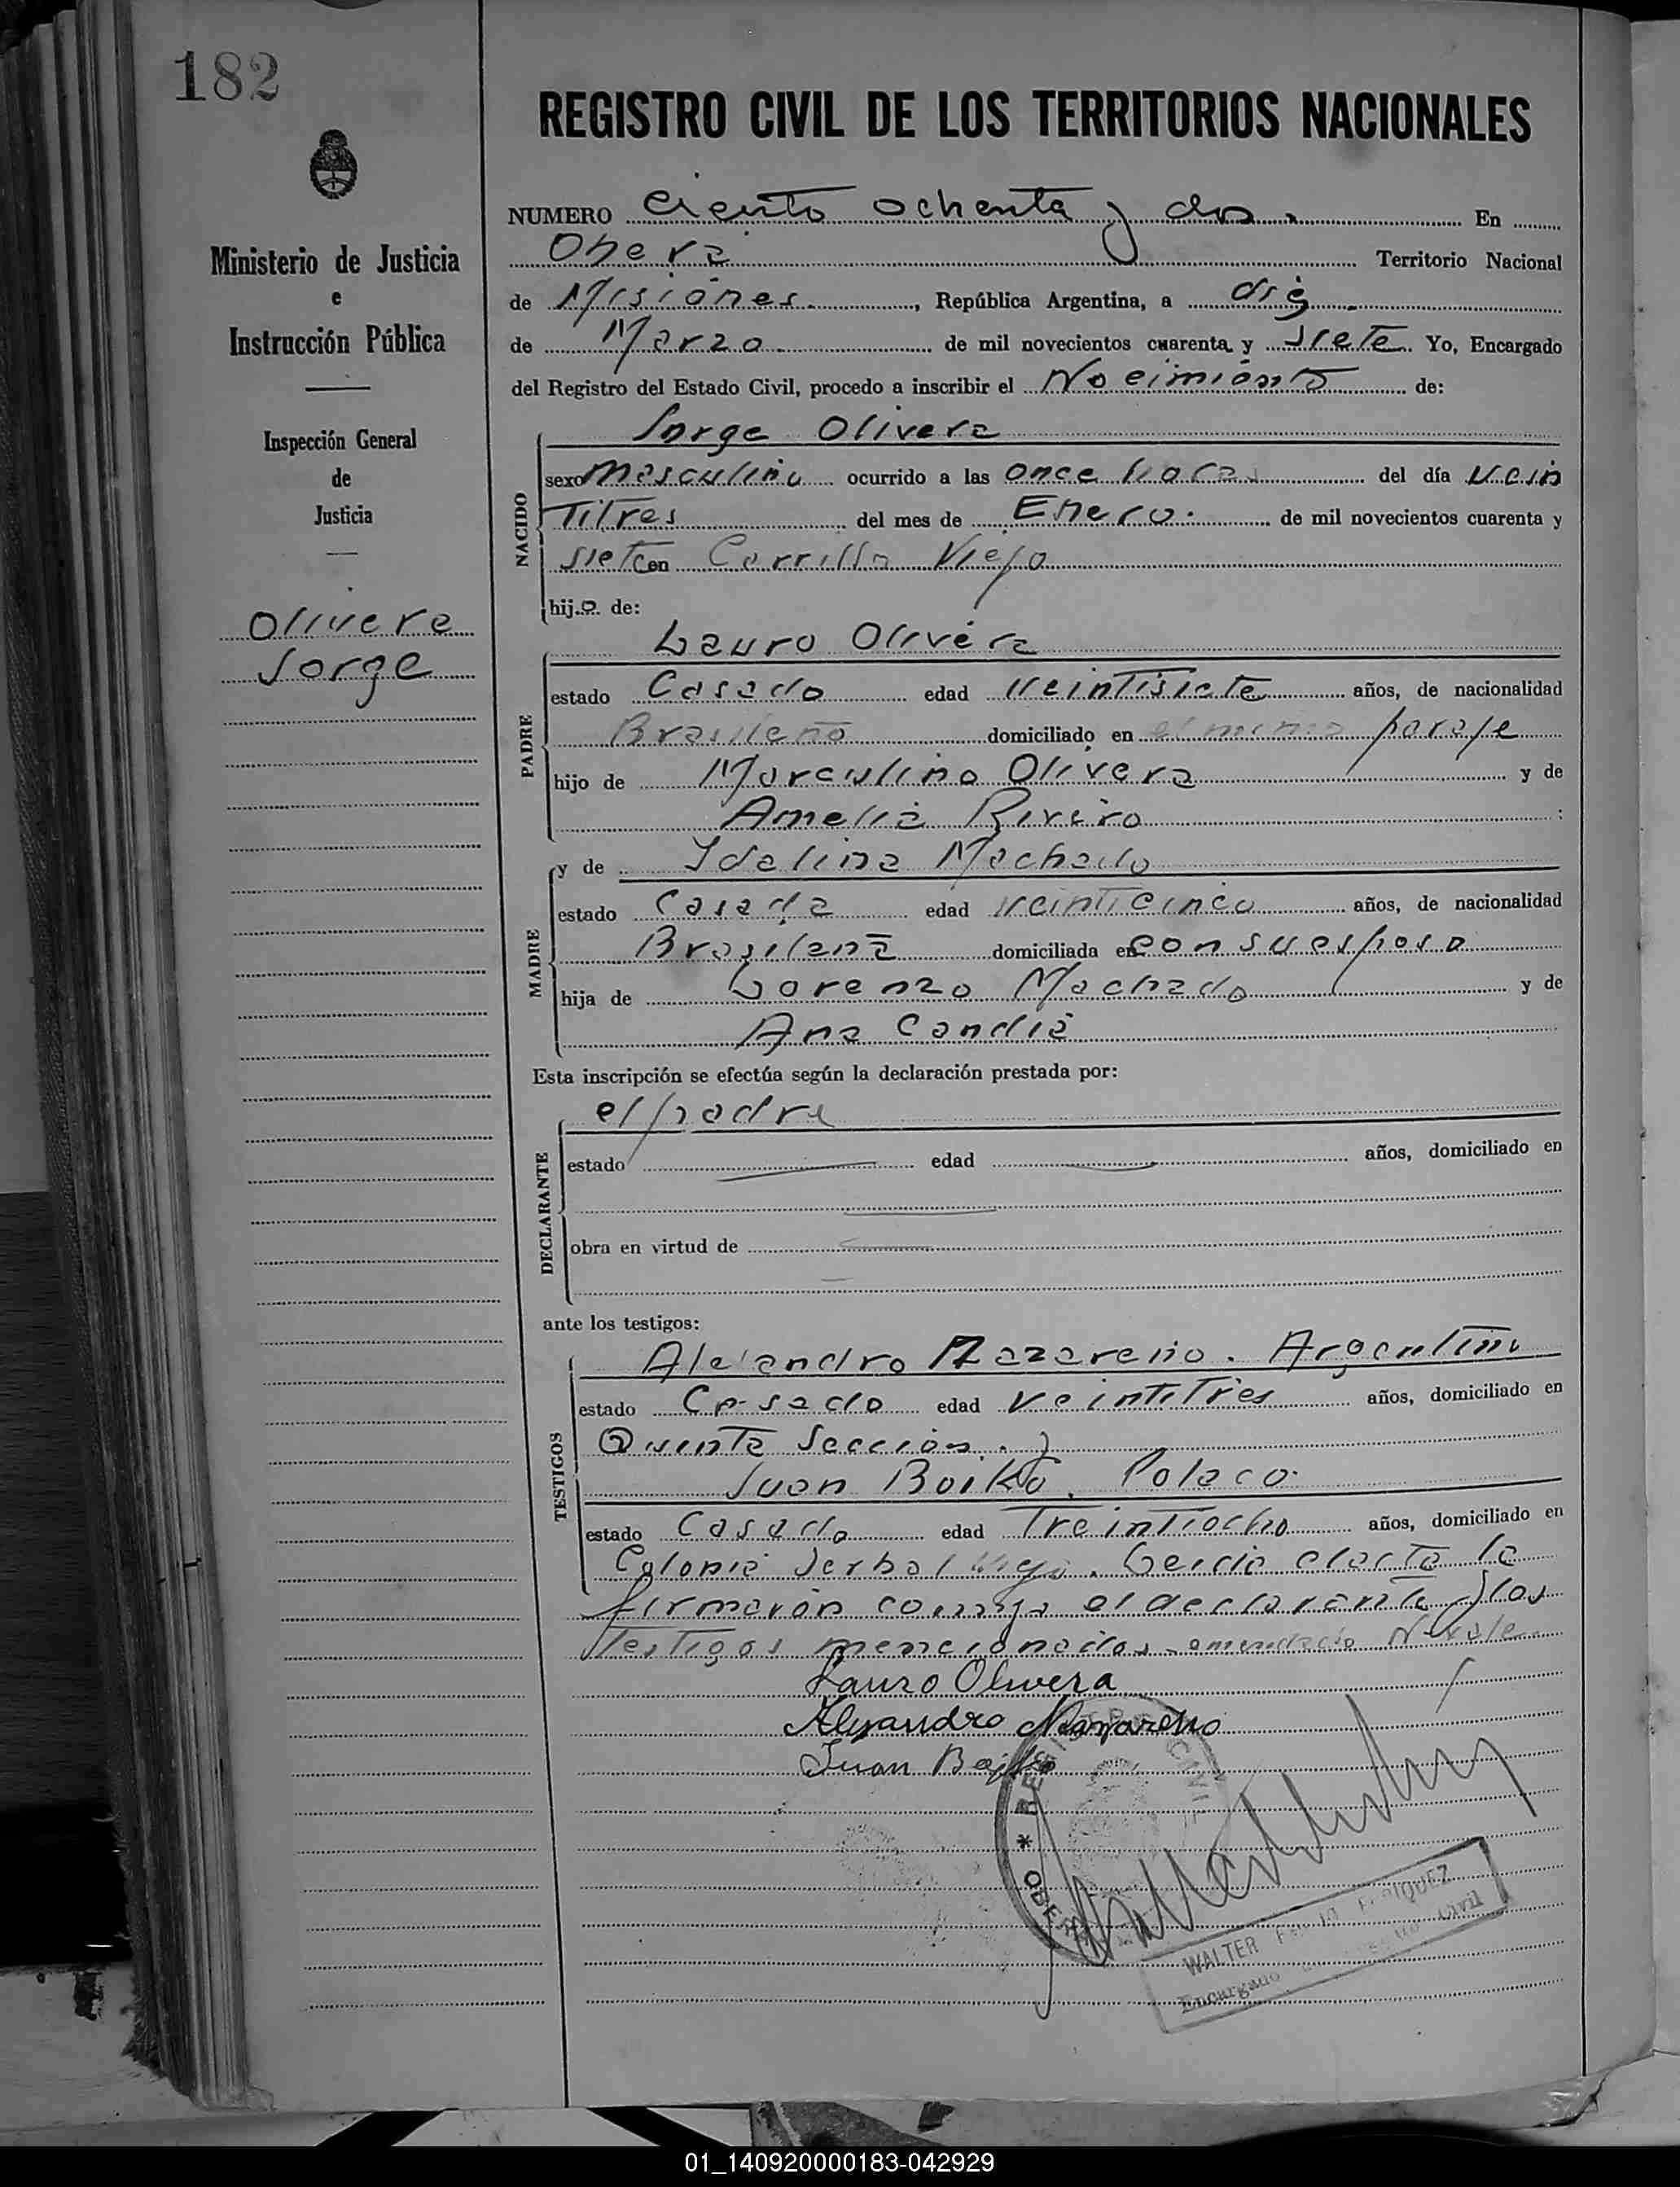 182
REGISTRO CIVIL DE LOS TERRITORIOS NACIONALES
Ministerio de Justicia
e
Instrucción Pública
Inspección General
de
Justicia
Olivera
Jorge
NUMERO ciento ochenta y dos. En
Oberá Territorio Nacional
de Misiones, República Argentina, a
de Marzo de mil novecientos cuarenta y siete Yo, Encargado
del Registro del Estado Civil, procedo a inscribir el Nacimiento de:
Jorge Olivera
NACIDO
sexo masculino ocurrido a las once horas del día vein
titres del mes de Enero. de mil novecientos cuarenta y
siete en Viejo
hijo de:
Lauro Olivera
PADRE
estado Casado edad veintisiete años, de nacionalidad
Brasileño domiciliado en el mismo paraje
hijo de Marculino Olivera y de
Amelia Riveiro :
y de Idelina Machado
MADRE
estado Casada edad veinticinco años, de nacionalidad
Brasileña domiciliada en con su esposo
hija de Lorenzo Machado y de
Ana Candia
Esta inscripción se efectúa según la declaración prestada por:
el padre
DECLARANTE
estado edad años, domiciliado en
obra en virtud de
ante los testigos:
Alejandro Nazareno. Argentino
TESTIGOS
estado Casado edad veintitres años, domiciliado en
Quinta Sección. y
Juan Boiko. Polaco.
estado Casado edad Treintiocho años, domiciliado en
Colonia Yerbal Viejo. Leida el acta la
firmaron conmigo el declarante y los
Testigos mencionados - emendado N - vale.
Lauro Olivera
Alejandro Nazareno
Juan Boiko
REGISTRO CIVIL * OBERA
WALTER ENRIQUEZ
Encargado Civil
01_140920000183-042929